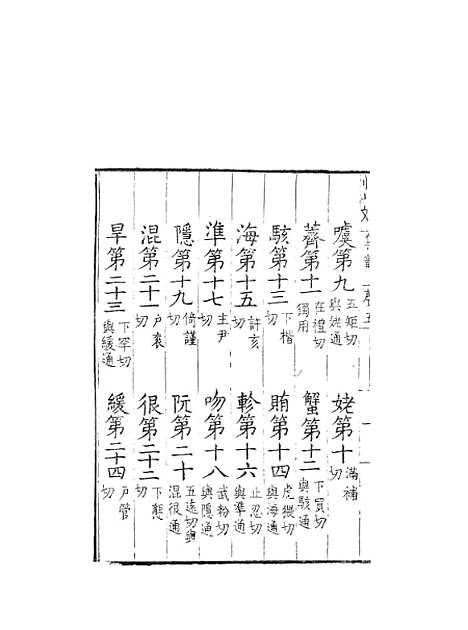 噳第九五矩切與姥通 姥第十滿補切
薺第十一在禮切獨用 蟹第十二下買切與駭通
駭第十三下楷切 賄第十四虎猥切與海通
海第十五許亥切 軫第十六止忍切與準通
準第十七主尹切 吻第十八武粉切與隱通
隱第十九倚謹切 阮第二十五遠切與混很通
混第二十一戶袞切 很第二十二下懇切
旱第二十三下罕切與緩通 緩第二十四戶管切